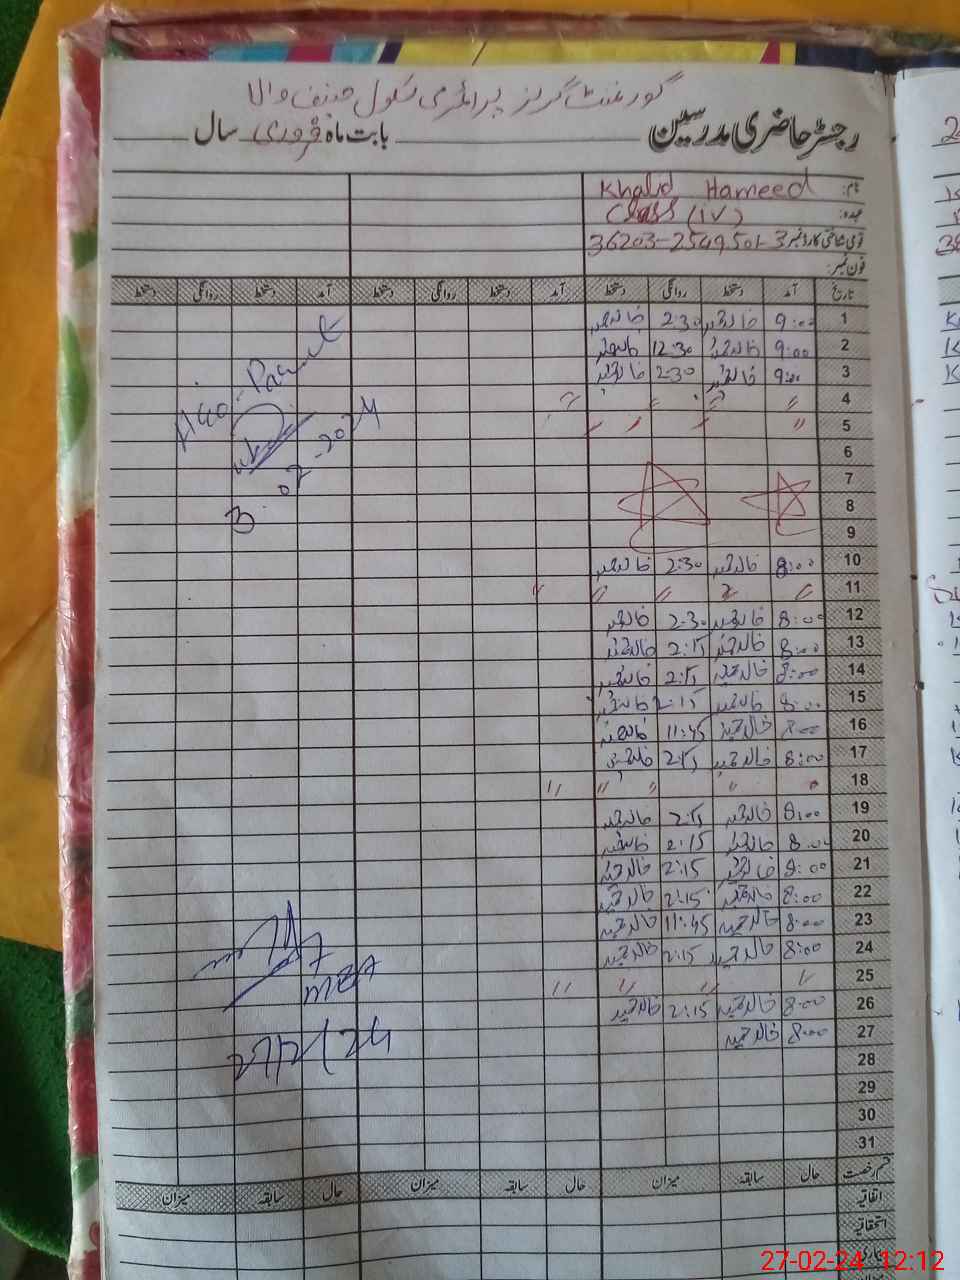 گورنمنٹ گرلز پرائمری سکول
رجسٹر حاضری مدرسین بابت ماہ فروری سال
نام: Khalid Hameed
عہدہ: Class (IV)
قومی شناختی کارڈ نمبر 36203-2549501-3
فون نمبر:
تاریخ آمد دستخط روانگی دستخط آمد دستخط روانگی دستخط آمد دستخط روانگی دستخط
1 9:00 خالد حمید 2:30 خالد حمید
2 9:00 خالد حمید 12:30 خالد حمید
3 9:00 خالد حمید 2:30 خالد حمید
4 〃 〃 〃 〃
5 〃 〃 〃 〃
6
7
8
9
10 8:00 خالد حمید 2:30 خالد حمید
11 〃 〃 〃 〃 〃
12 8:00 خالد حمید 2:30 خالد حمید
13 8:00 خالد حمید 2:15 خالد حمید
14 8:00 خالد حمید 2:15 خالد حمید
15 8:00 خالد حمید 2:15 خالد حمید
16 8:00 خالد حمید 11:45 خالد حمید
17 8:00 خالد حمید 2:15 خالد حمید
18 〃 〃 〃 〃 〃
19 8:00 خالد حمید 2:15 خالد حمید
20 8:00 خالد حمید 2:15 خالد حمید
21 8:00 خالد حمید 2:15 خالد حمید
22 8:00 خالد حمید 2:15 خالد حمید
23 8:00 خالد حمید 11:45 خالد حمید
24 8:00 خالد حمید 2:15 خالد حمید
25 〃 〃 〃 〃
26 8:00 خالد حمید 2:15 خالد حمید
27 8:00 خالد حمید
28
29
30
31
3-02-2024
MEA
27/2/24
قسم رخصت حال سابقہ میزان حال سابقہ میزان حال سابقہ میزان
اتفاقیہ
استحقاقیہ
بیماری
27-02-24 12:12